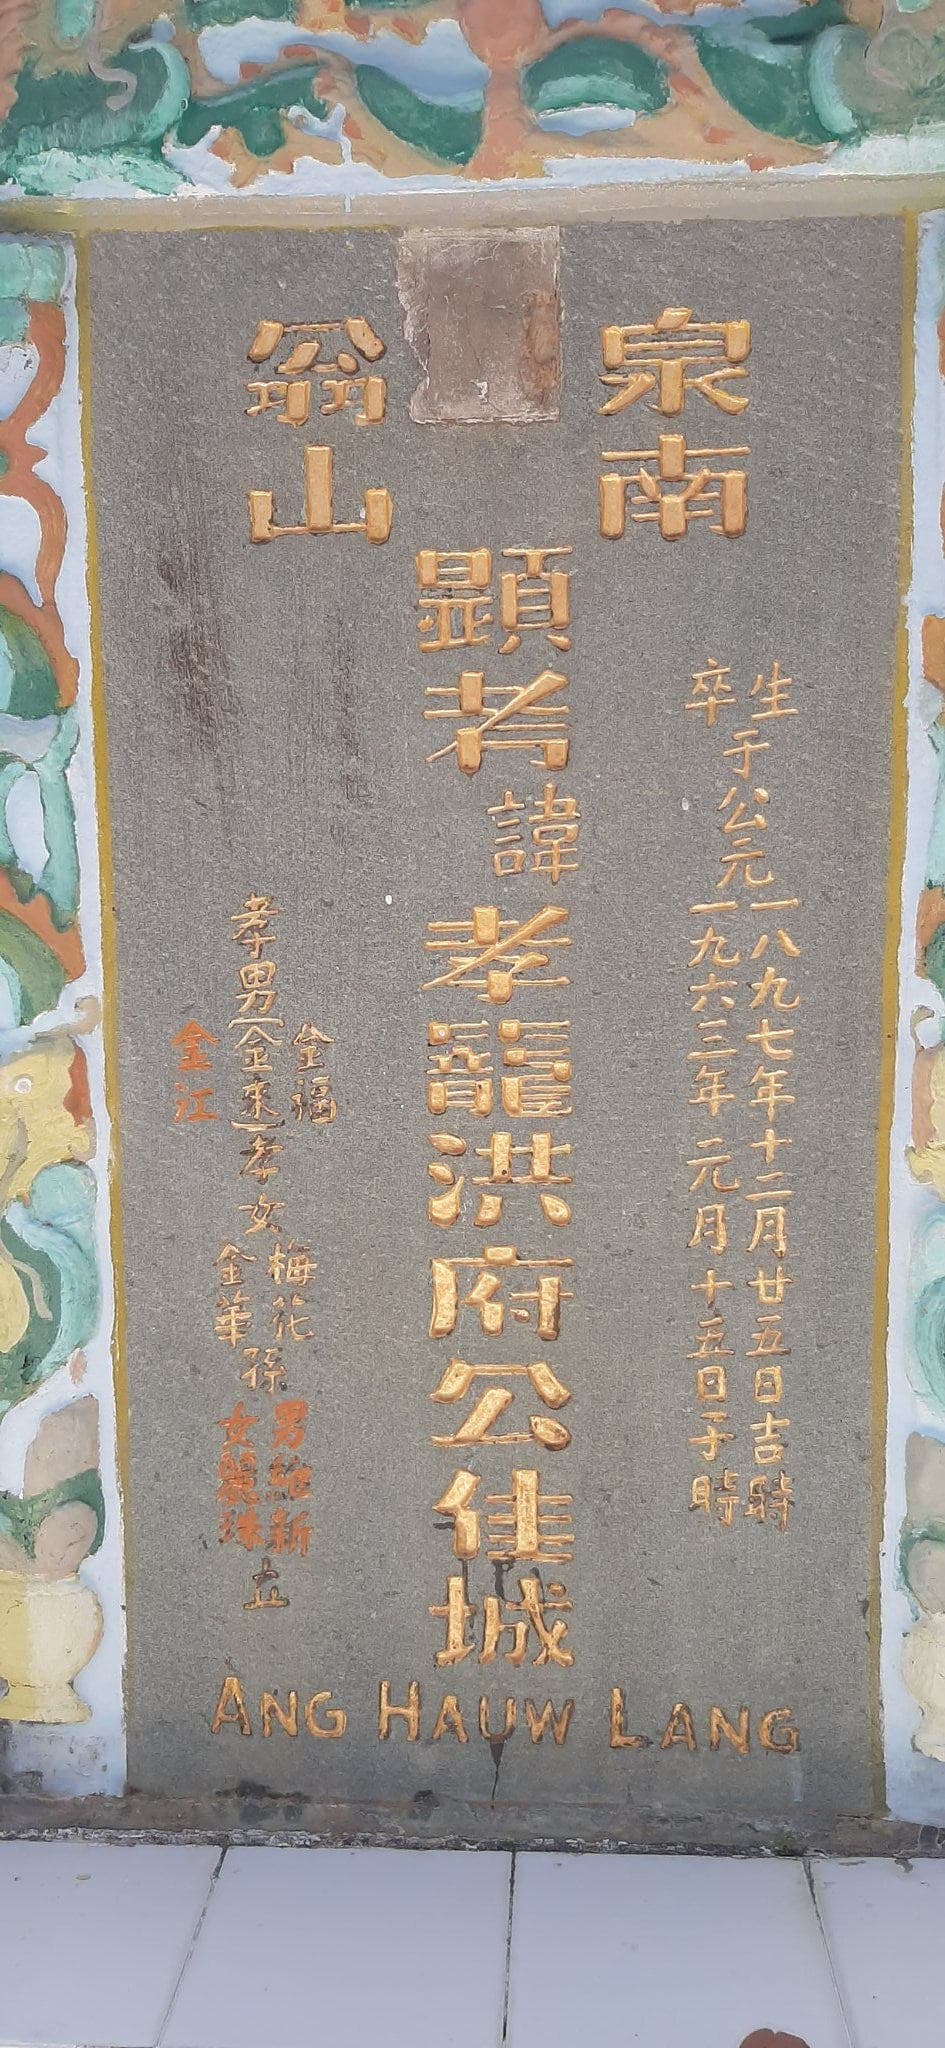 泉南
翁山
生于公元一八九七年十二月廿五日吉時
卒于公元一九六三年元月十五日子時
顯考諱孝龍洪府公佳城
孝男
金福
金來
金江
孝女
梅花
金華
孫
男
新
女麗珠
立
ANG HAUW LANG